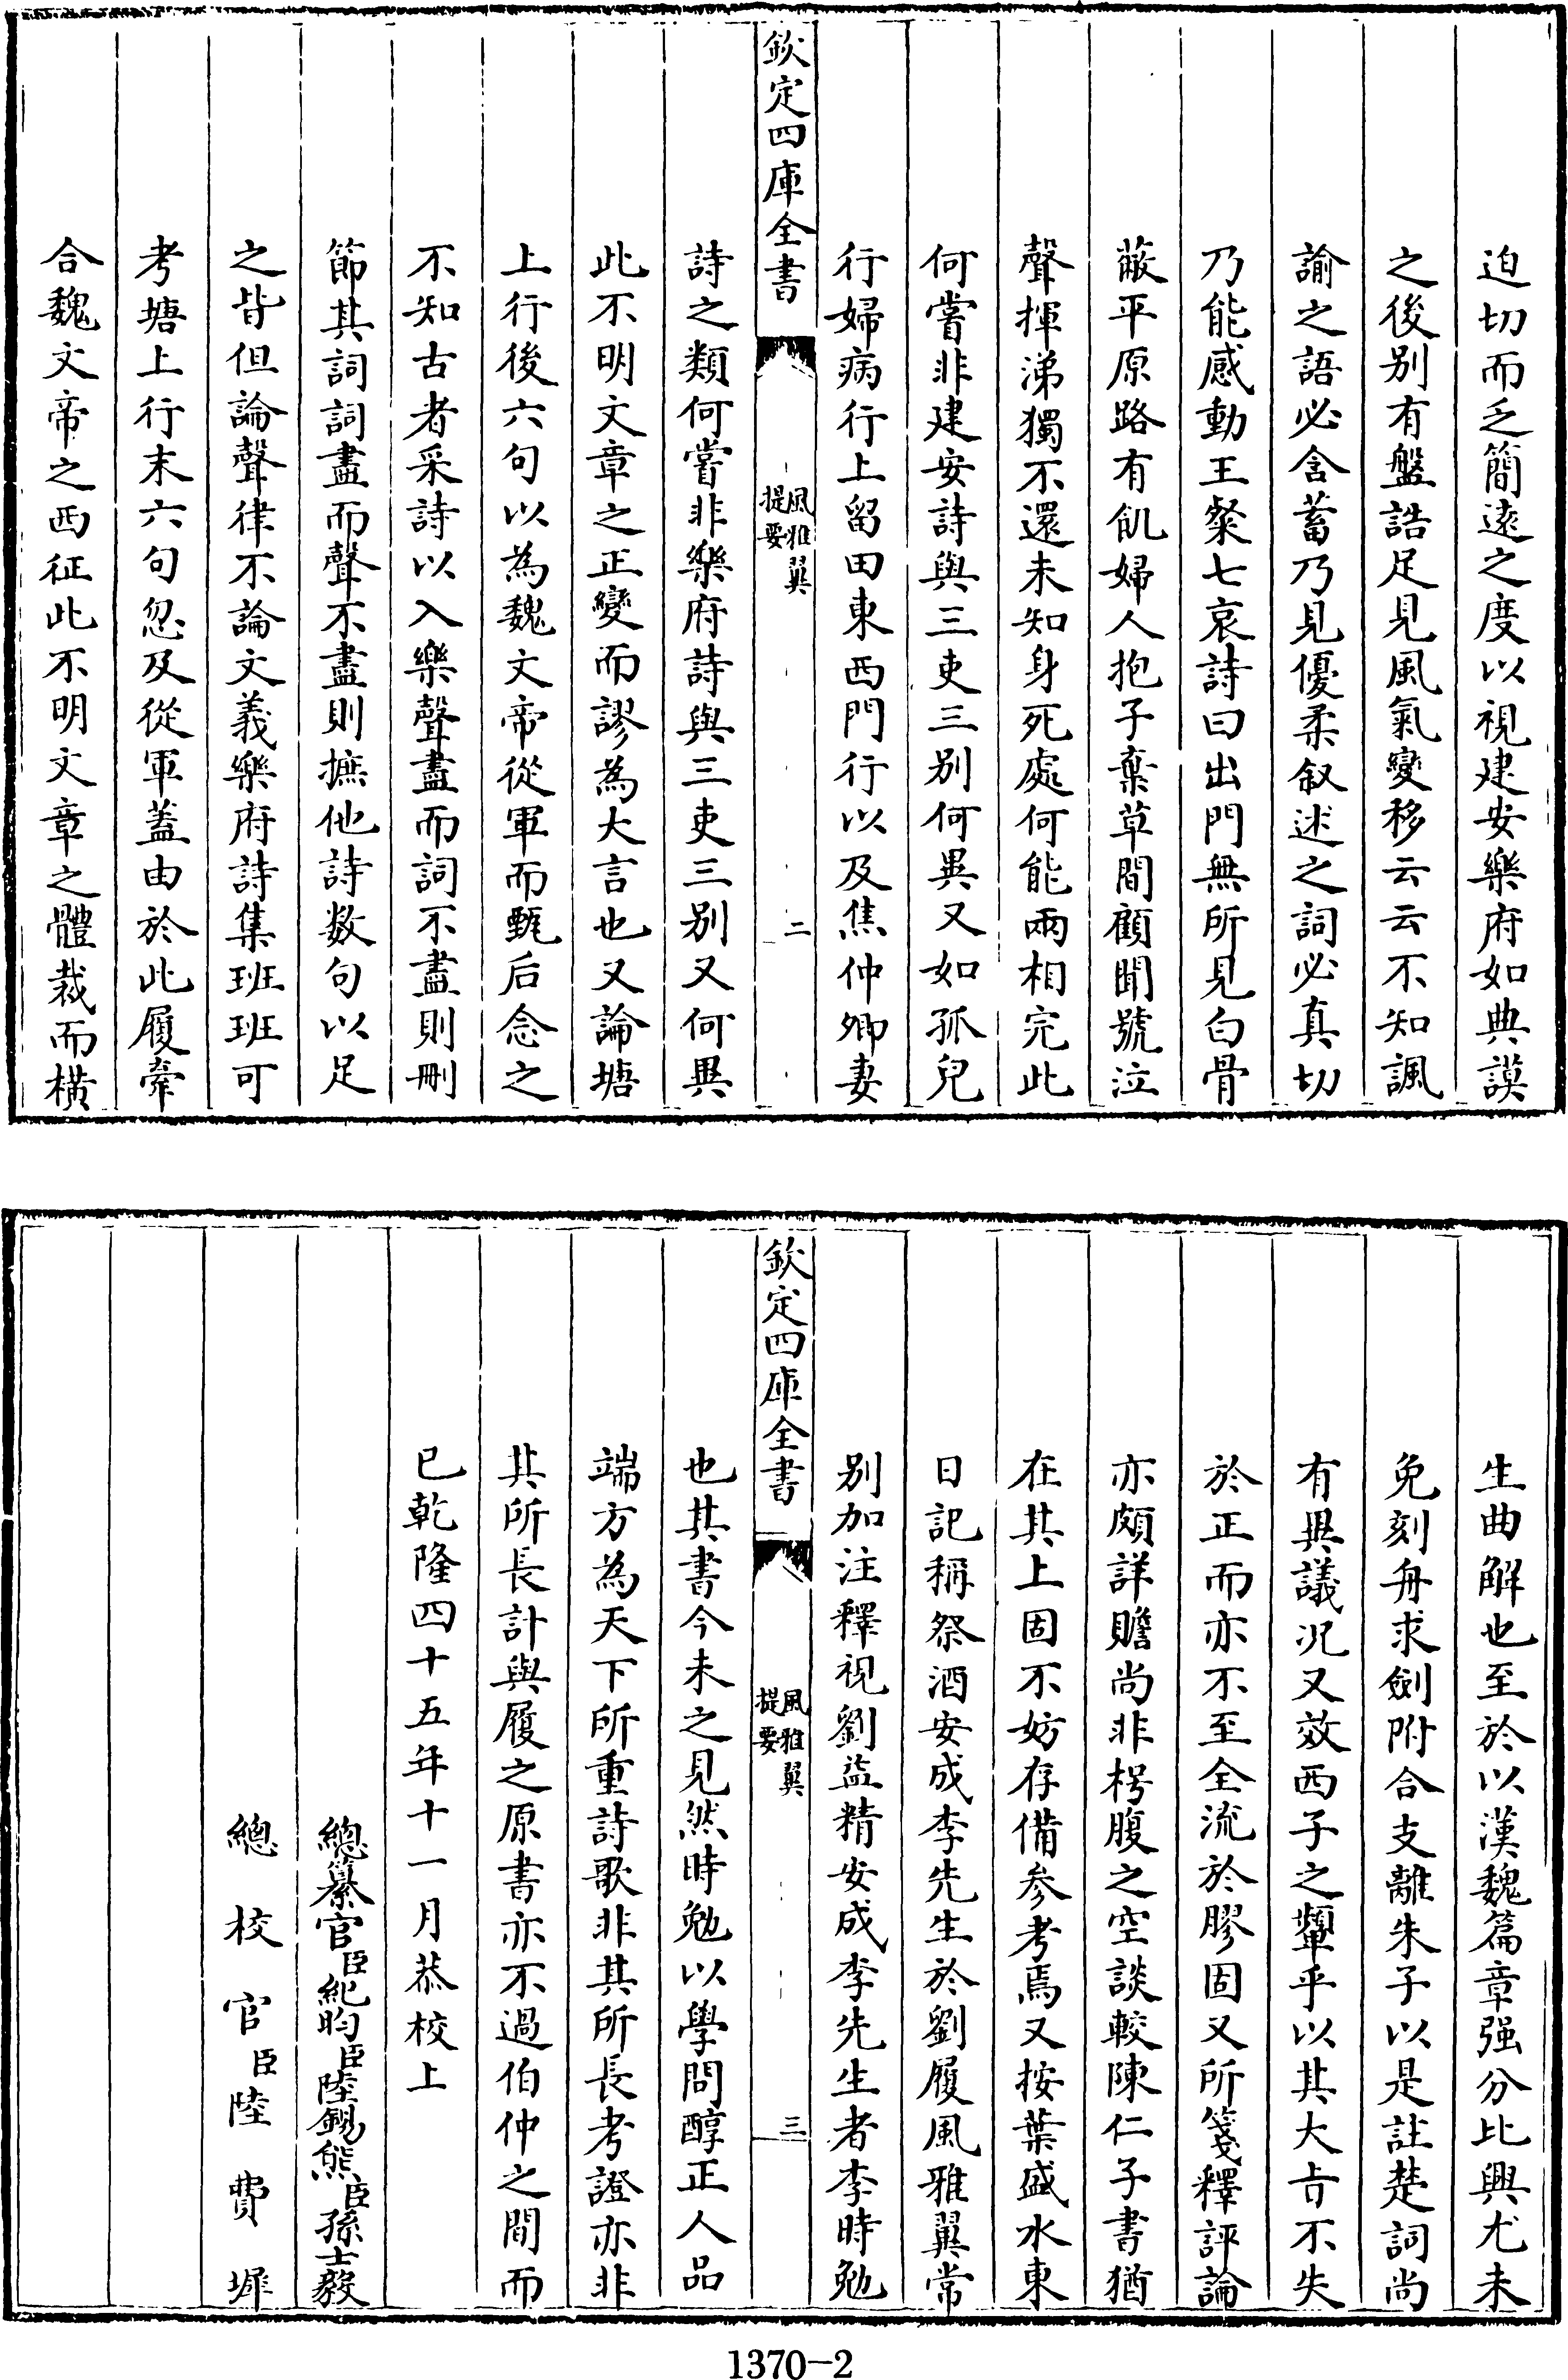 迫切而乏簡遠之度以視建安樂府如典謨
之後別有盤誥足見風氣變移云云不知諷
諭之語必含蓄乃見優柔叙述之詞必真切
乃能感動王粲七哀詩曰出門無所見白骨
蔽平原路有飢婦人抱子棄草間顧聞號泣
聲揮涕獨不還未知身死處何能兩相完此
何嘗非建安詩與三吏三別何異又如孤兒
行婦病行上留田東西門行以及焦仲卿妻
欽定四庫全書
風雅翼
提要
二
詩之類何嘗非樂府詩與三吏三別又何異
此不明文章之正變而謬為大言也又論塘
上行後六句以為魏文帝從軍而甄后念之
不知古者采詩以入樂聲盡而詞不盡則刪
節其詞詞盡而聲不盡則摭他詩数句以足
之皆但論聲律不論文義樂府詩集班班可
考塘上行末六句忽及從軍蓋由於此履牽
合魏文帝之西征此不明文章之體裁而橫
生曲解也至於以漢魏篇章强分比興尤未
免刻舟求劍附合支離朱子以是註楚詞尚
有異議况又效西子之顰乎以其大㫖不失
於正而亦不至全流於膠固又所箋釋評論
亦頗詳贍尚非枵腹之空談較陳仁子書猶
在其上固不妨存備参考焉又按葉盛水東
日記稱祭酒安成李先生於劉履風雅翼常
別加注釋視劉益精安成李先生者李時勉
欽定四庫全書
風雅翼
提要
三
也其書今未之見然時勉以學問醇正人品
端方為天下所重詩歌非其所長考證亦非
其所長計與履之原書亦不過伯仲之間而
已乾隆四十五年十一月恭校上
總纂官臣紀昀臣陸錫熊臣孫士毅
總校官臣陸費墀
1370-2